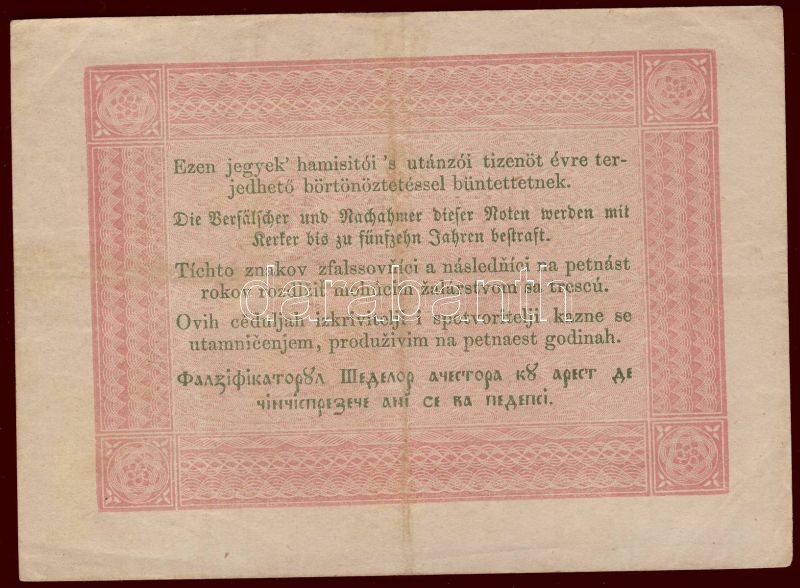 Ezen jegyek' hamisitói 's utánzói tizenöt évre ter-
jedhető börtönöztetéssel büntettetnek.
Die Verfälscher und Nachahmer dieser Noten werden mit
Kerker bis zu fünfzehn Jahren bestraft.
Tíchto znakov zfalssovňíci a následňíci na petnást
rokov rozdlžiť mohúcim žalárstvom sa trescú.
darabanth
Ovih ceduljah izkrivitelji i spotvoritelji kazne se
utamničenjem, produživim na petnaest godinah.
Фалзіфікаторꙋл Шеделор ачестора кꙋ арест де
чінчіспрезече ані се ва педепсі.